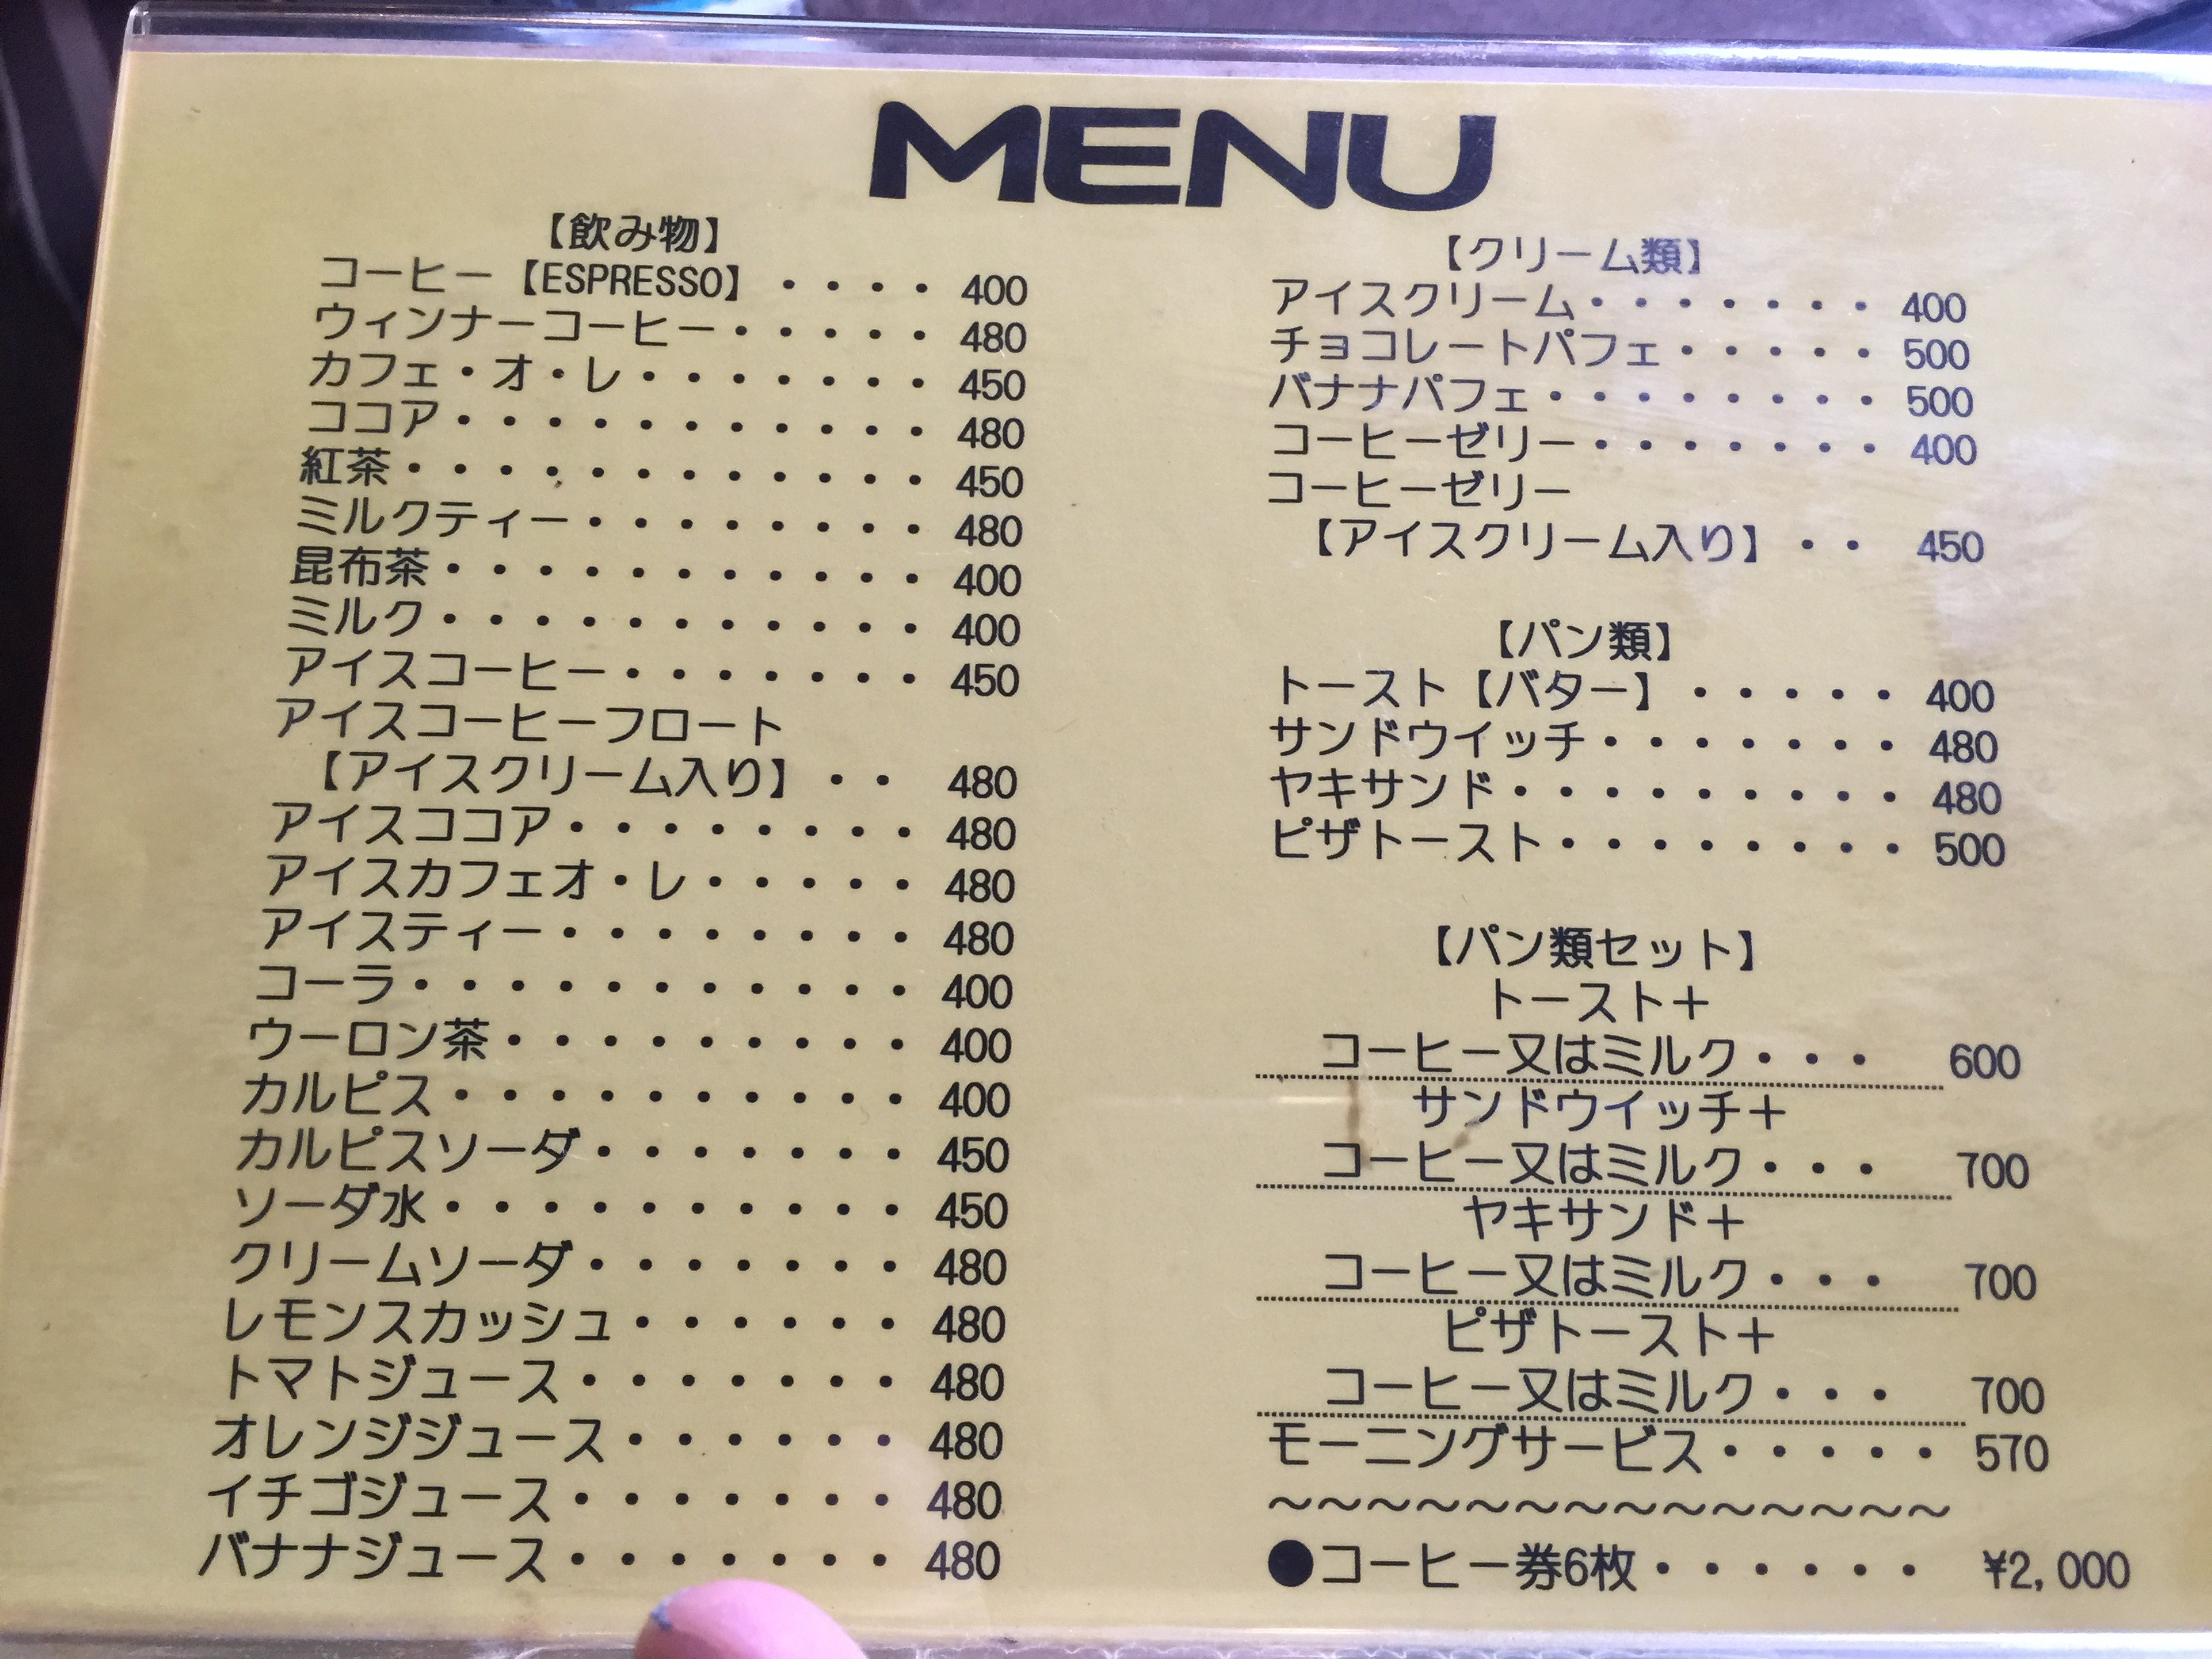 MENU
【飲み物】
コーヒー【ESPRESSO】・・・・ 400
ウィンナーコーヒー・・・・・ 480
カフェ・オ・レ・・・・・・・ 450
ココア・・・・・・・・・・・ 480
紅茶・・・・・・・・・・・・ 450
ミルクティー・・・・・・・・ 480
昆布茶・・・・・・・・・・・ 400
ミルク・・・・・・・・・・・ 400
アイスコーヒー・・・・・・・ 450
アイスコーヒーフロート
【アイスクリーム入り】・・ 480
アイスココア・・・・・・・・ 480
アイスカフェオ・レ・・・・・ 480
アイスティー・・・・・・・・ 480
コーラ・・・・・・・・・・・ 400
ウーロン茶・・・・・・・・・ 400
カルピス・・・・・・・・・・ 400
カルピスソーダ・・・・・・・ 450
ソーダ水・・・・・・・・・・ 450
クリームソーダ・・・・・・・ 480
レモンスカッシュ・・・・・・ 480
トマトジュース・・・・・・・ 480
オレンジジュース・・・・・・ 480
イチゴジュース・・・・・・・ 480
バナナジュース・・・・・・・ 480
【クリーム類】
アイスクリーム・・・・・・・ 400
チョコレートパフェ・・・・・ 500
バナナパフェ・・・・・・・・ 500
コーヒーゼリー・・・・・・・ 400
コーヒーゼリー
【アイスクリーム入り】・・ 450
【パン類】
トースト【バター】・・・・・ 400
サンドウイッチ・・・・・・・ 480
ヤキサンド・・・・・・・・・ 480
ピザトースト・・・・・・・・ 500
【パン類セット】
トースト＋
コーヒー又はミルク・・・ 600
サンドウイッチ＋
コーヒー又はミルク・・・ 700
ヤキサンド＋
コーヒー又はミルク・・・ 700
ピザトースト＋
コーヒー又はミルク・・・ 700
モーニングサービス・・・・・ 570
～～～～～～～～～～～～～～
●コーヒー券6枚・・・・・・ ¥2,000